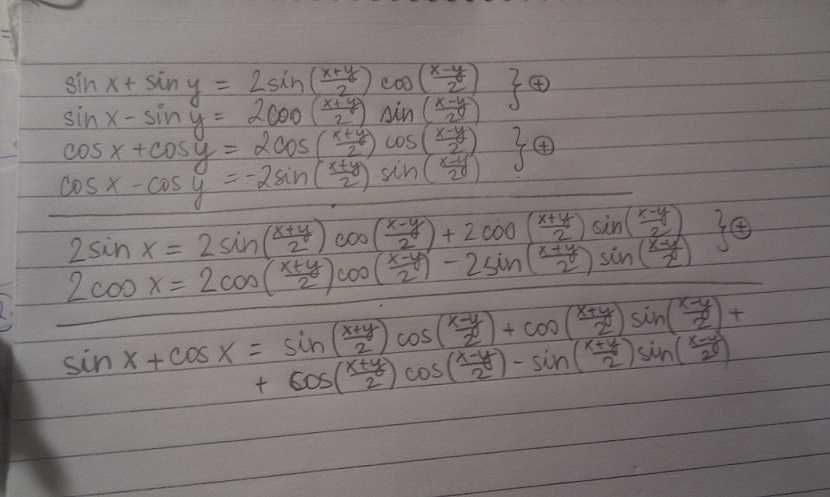 sin x + sin y = 2sin(x+y/2) cos(x-y/2) } ⊕
sin x - sin y = 2cos(x+y/2) sin(x-y/2)
cos x + cos y = 2cos(x+y/2) cos(x-y/2) } ⊕
cos x - cos y = -2sin(x+y/2) sin(x-y/2)
2sin x = 2sin(x+y/2) cos(x-y/2) + 2cos(x+y/2) sin(x-y/2) } ⊕
2cos x = 2cos(x+y/2) cos(x-y/2) - 2sin(x+y/2) sin(x-y/2)
sin x + cos x = sin(x+y/2) cos(x-y/2) + cos(x+y/2) sin(x-y/2) +
+ cos(x+y/2) cos(x-y/2) - sin(x+y/2) sin(x-y/2)